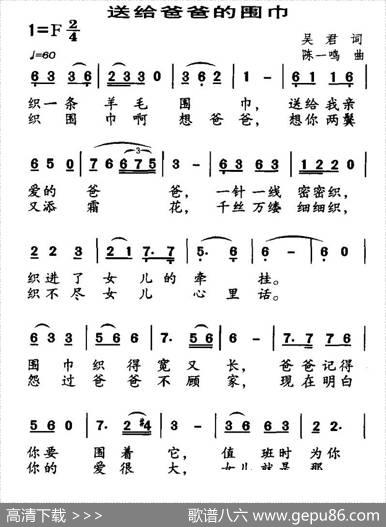 送给爸爸的围巾
1=F 2/4
吴君 词
♩=60
陈一鸣 曲
6 3 3 6 | 2 3 3 0 | 3 6 2 | 1 - | 6 1 1 6 |
织一条 羊毛 围 巾, 送给我亲
织围巾啊 想爸爸, 想你两鬓
6 5 0 | 7 6 6 7 5 | 3 - | 6 3 6 3 | 1 2 2 0 |
3
爱的 爸 爸, 一针一线 密密织,
又添 霜 花, 千丝万缕 细细织,
2 2 3 | 2 1 7. 7 | 5. 6 | 6 - | 6 0 |
织进了 女儿的牵 挂。
织不尽 女儿 心里话。
6 3 3 | 5 6 5 | 7. 5 | 6 - | 7. 7 7 6 |
围巾 织得 宽又长, 爸爸记得
怨过 爸爸 不顾家, 现在明白
5 6 0 | 7. 2 #4 | 3 - | 3 6 6 6 | 6 0 |
你要 围着 它, 值班时为你
你的 爱很 大, 女儿就是那
高清下载 >>>
歌谱八六 www.gepu86.com